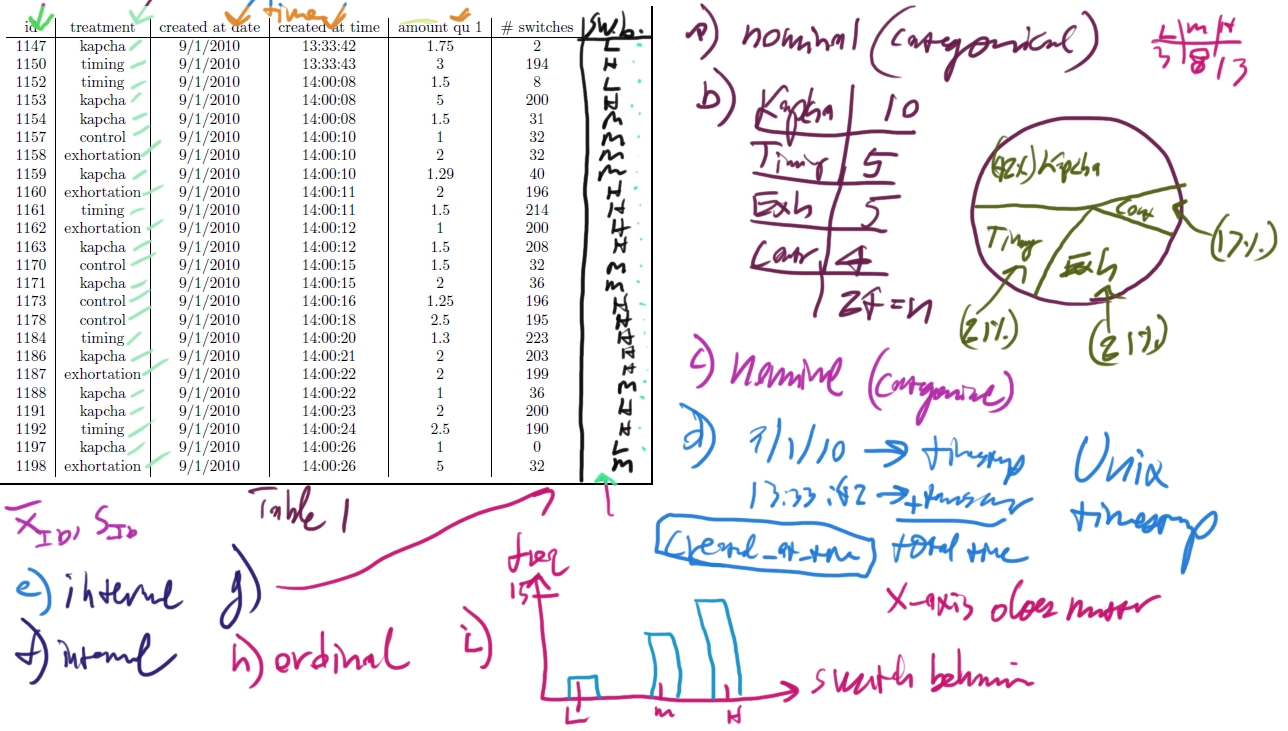 times
id treatment created at date created at time amount qu 1 # switches sw.b.
1147 kapcha 9/1/2010 13:33:42 1.75 2 L
1150 timing 9/1/2010 13:33:43 3 194 H
1152 timing 9/1/2010 14:00:08 1.5 8 L
1153 kapcha 9/1/2010 14:00:08 5 200 H
1154 kapcha 9/1/2010 14:00:08 1.5 31 m
1157 control 9/1/2010 14:00:10 1 32 m
1158 exhortation 9/1/2010 14:00:10 2 32 m
1159 kapcha 9/1/2010 14:00:10 1.29 40 m
1160 exhortation 9/1/2010 14:00:11 2 196 H
1161 timing 9/1/2010 14:00:11 1.5 214 H
1162 exhortation 9/1/2010 14:00:12 1 200 H
1163 kapcha 9/1/2010 14:00:12 1.5 208 H
1170 control 9/1/2010 14:00:15 1.5 32 m
1171 kapcha 9/1/2010 14:00:15 2 36 m
1173 control 9/1/2010 14:00:16 1.25 196 H
1178 control 9/1/2010 14:00:18 2.5 195 H
1184 timing 9/1/2010 14:00:20 1.3 223 H
1186 kapcha 9/1/2010 14:00:21 2 203 H
1187 exhortation 9/1/2010 14:00:22 2 199 H
1188 kapcha 9/1/2010 14:00:22 1 36 m
1191 kapcha 9/1/2010 14:00:23 2 200 H
1192 timing 9/1/2010 14:00:24 2.5 190 H
1197 kapcha 9/1/2010 14:00:26 1 0 L
1198 exhortation 9/1/2010 14:00:26 5 32 m
Table 1
a) nominal (categorical)
L m H
3 8 13
b)
Kapcha 10
Timing 5
Exh 5
Contr 4
Σf = n
(42%) Kapcha
Cont
(17%)
Timing
(21%)
Exh
(21%)
c) nominal (categorical)
d) 9/1/10 → timestamp
13:33:42 →
created_at_time total time
Unix
timestamp
x̄ID, SID
e) interval
f) interval
g)
h) ordinal
i)
freq
15
L m H
switch behavior
x-axis does matter